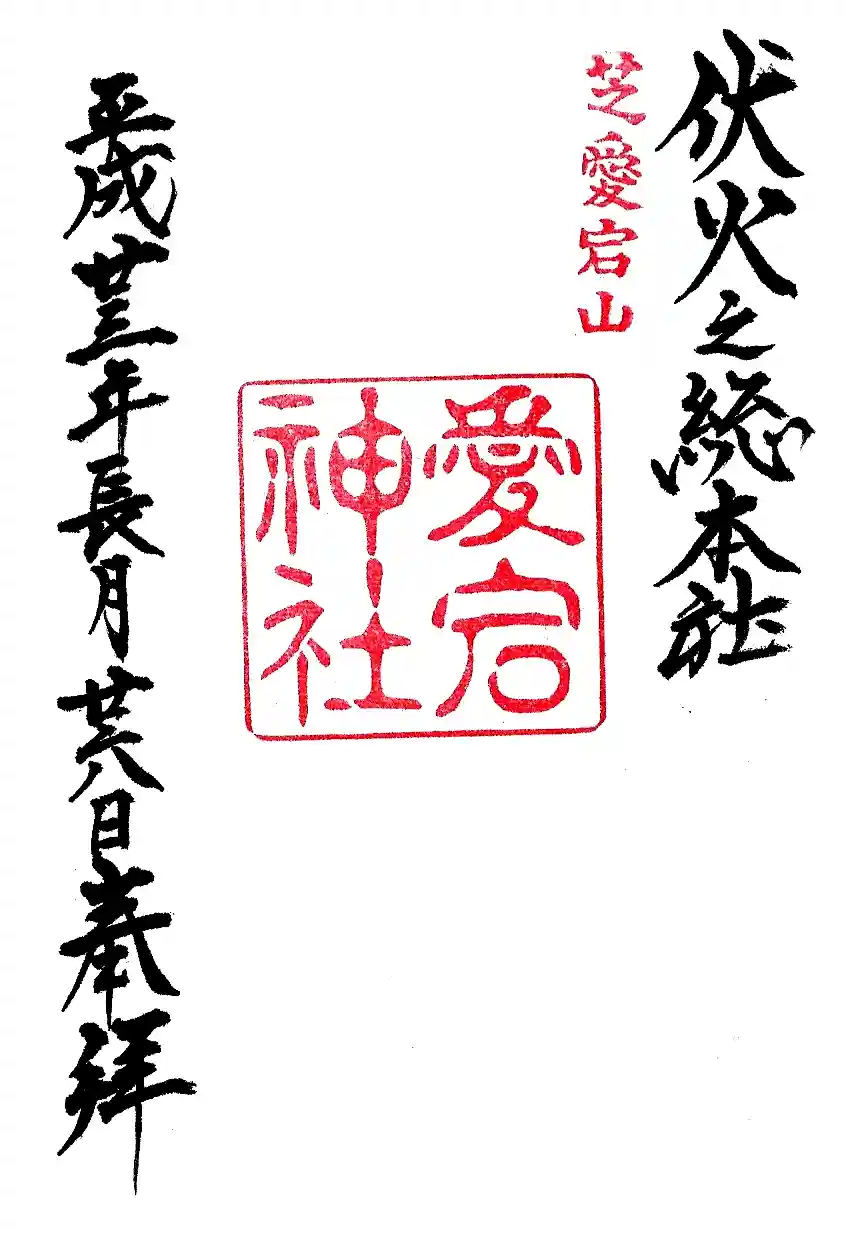 伏火之総本社
芝愛宕山
愛宕
神社
平成廿三年長月廿八日奉拜